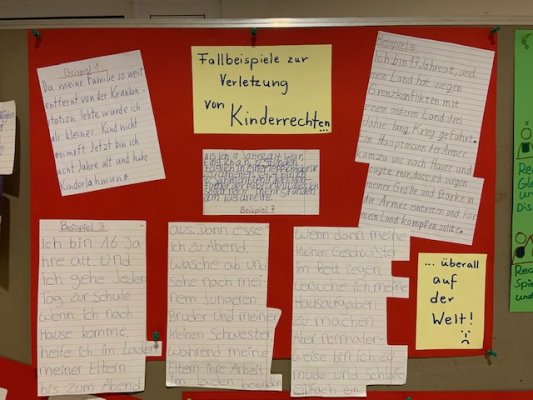 Fallbeispiele zur
Verletzung
von Kinderrechten...
Beispiel 1:
Da meine Familie so weit
entfernt von der Kranken-
station lebte, wurde ich
als kleines Kind nicht
geimpft. Jetzt bin ich
acht Jahre alt und habe
Kinderlähmung.
Als ich 9 Jahre alt war
Beispiel 7
Ich bin 13 Jahre alt, und
mein Land hat wegen
Grenzkonflikten mit
einem anderen Land drei
Jahre lang Krieg geführt.
Ein Hauptmann der Armee
kam zu uns nach Hause und
sagte mir, dass ich wegen
meiner Größe und Stärke in
die Armee eintreten und für
mein Land kämpfen sollte.
Beispiel 3
Ich bin 16 Ja
hre alt. Und
ich gehe Jeden
Tag zur Schule
wenn ich nach
Hause komme
helfe ich im Laden
meiner Eltern
bis zum Abend
aus. Dann esse
ich zu Abend,
wasche ab und
sehe nach mei
nem Jüngeren
Bruder und meiner
kleinen Schwester
während meine
Eltern ihre Arbeit
im Laden beenden
wenn dann meine
kleinen Geschwister
im Bett liegen
versuche ich meine
Hausaufgaben
zu machen
Aber normaler-
weise bin ich zu
müde und schlafe
einfach ein
... überall
auf
der
Welt!